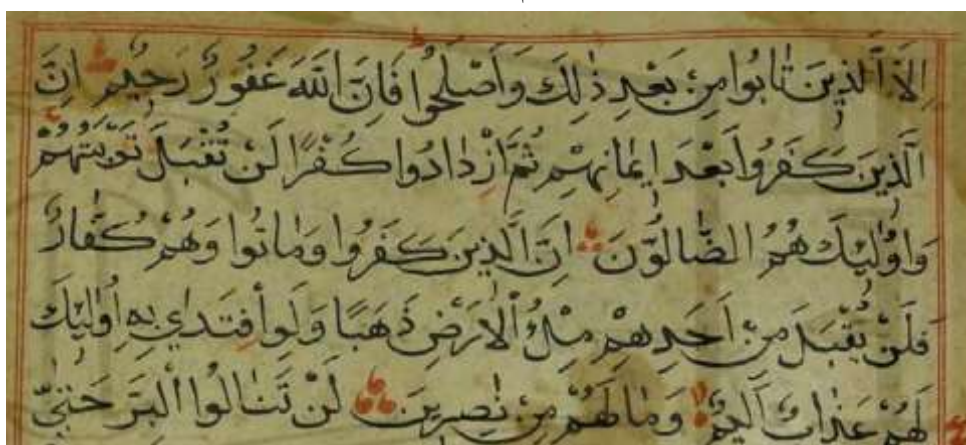 اِلَّا الَّذِينَ تَابُوا مِنْ بَعْدِ ذٰلِكَ وَاَصْلَحُوا فَاِنَّ اللّٰهَ غَفُورٌ رَحِيمٌ اِنَّ
الَّذِينَ كَفَرُوا بَعْدَ اِيمَانِهِمْ ثُمَّ ازْدَادُوا كُفْرًا لَنْ تُقْبَلَ تَوْبَتُهُمْ
وَاُولٰئِكَ هُمُ الضَّالُّونَ اِنَّ الَّذِينَ كَفَرُوا وَمَاتُوا وَهُمْ كُفَّارٌ
فَلَنْ يُقْبَلَ مِنْ اَحَدِهِمْ مِلْءُ الْاَرْضِ ذَهَبًا وَلَوِ افْتَدٰي بِهِ اُولٰئِكَ
لَهُمْ عَذَابٌ اَلِيمٌ وَمَا لَهُمْ مِنْ نٰصِرِينَ لَنْ تَنَالُوا الْبِرَّ حَتّٰي